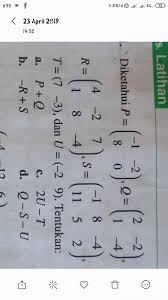 23 April 2019
14:52
Latihan
Diketahui P = ( -2
8 0 ), Q = ( 2 -2
1 -4 ),
R = ( 4 -2 7
1 8 -4 ), S = ( -1 8 -4
11 5 2 ),
T = (7 -3), dan U = (-2 9). Tentukan:
a. P + Q c. 2U - T
b. -R + S d. Q - S - U